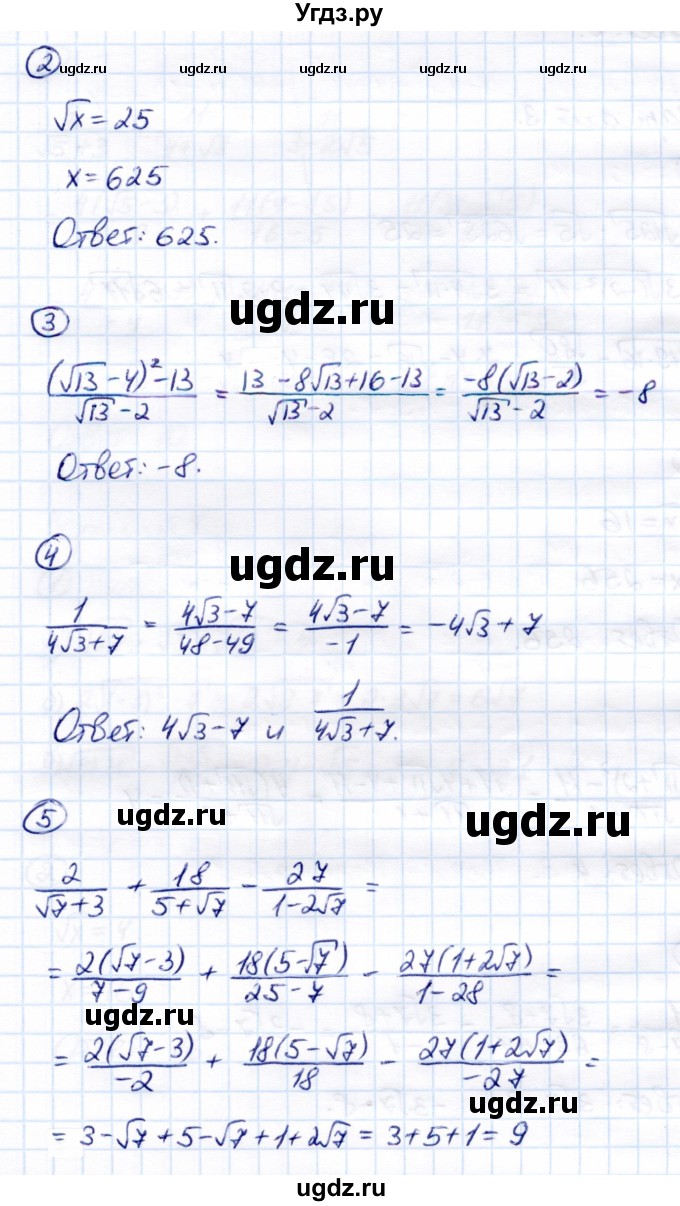 Угдз.ру
2
ugdz.ru ugdz.ru ugdz.ru ugdz.ru ugdz.ru
√x = 25
x = 625
Ответ: 625.
3
ugdz.ru
((√13 - 4)² - 13)/(√13 - 2) = (13 - 8√13 + 16 - 13)/(√13 - 2) = (-8(√13 - 2))/(√13 - 2) = -8
Ответ: -8.
4
ugdz.ru
1/(4√3 + 7) = (4√3 - 7)/(48 - 49) = (4√3 - 7)/(-1) = -4√3 + 7
Ответ: 4√3 - 7 и 1/(4√3 + 7).
5
ugdz.ru ugdz.ru
2/(√7 + 3) + 18/(5 + √7) - 27/(1 - 2√7) =
= (2(√7 - 3))/(7 - 9) + (18(5 - √7))/(25 - 7) - (27(1 + 2√7))/(1 - 28) =
ugdz.ru
= (2(√7 - 3))/(-2) + (18(5 - √7))/18 - (27(1 + 2√7))/(-27) =
ugdz.ru
= 3 - √7 + 5 - √7 + 1 + 2√7 = 3 + 5 + 1 = 9
ugdz.ru